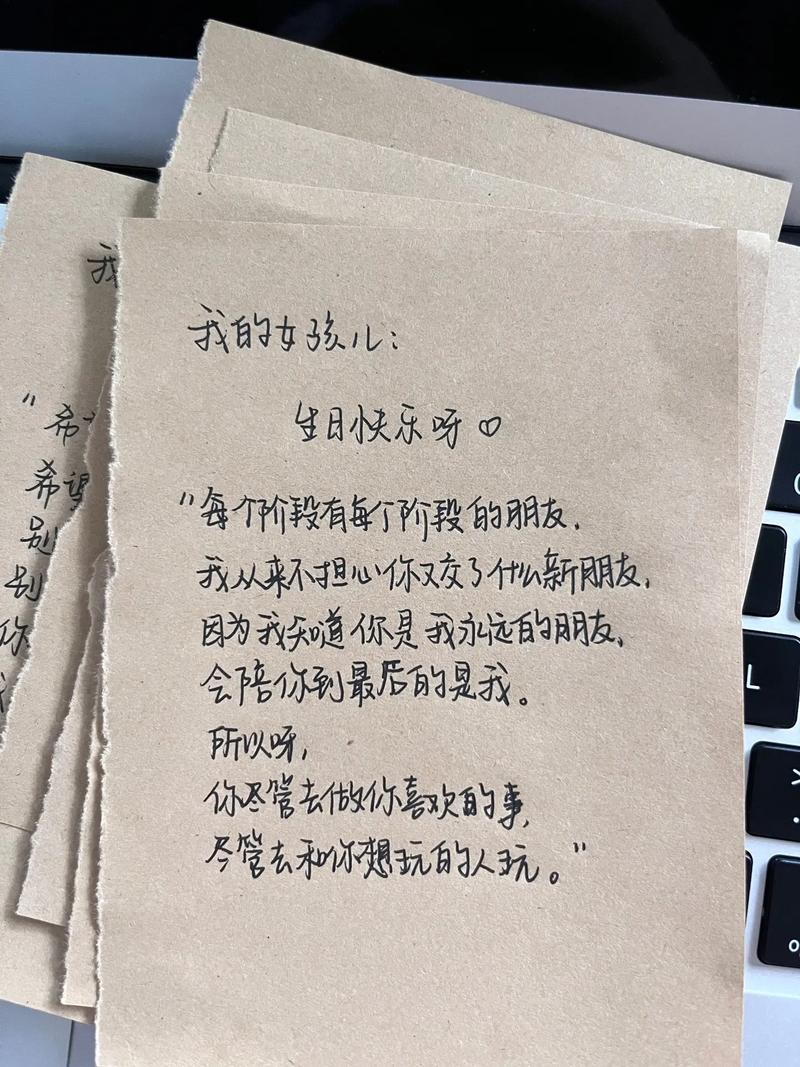 我的女孩儿：
生日快乐呀♡
"每个阶段有每个阶段的朋友，
我从来不担心你又交了什么新朋友，
因为我知道你是我永远的朋友，
会陪你到最后的是我。
所以呀，
你尽管去做你喜欢的事，
尽管去和你想玩的人玩。"
我
"希
希望
别
别
你
L